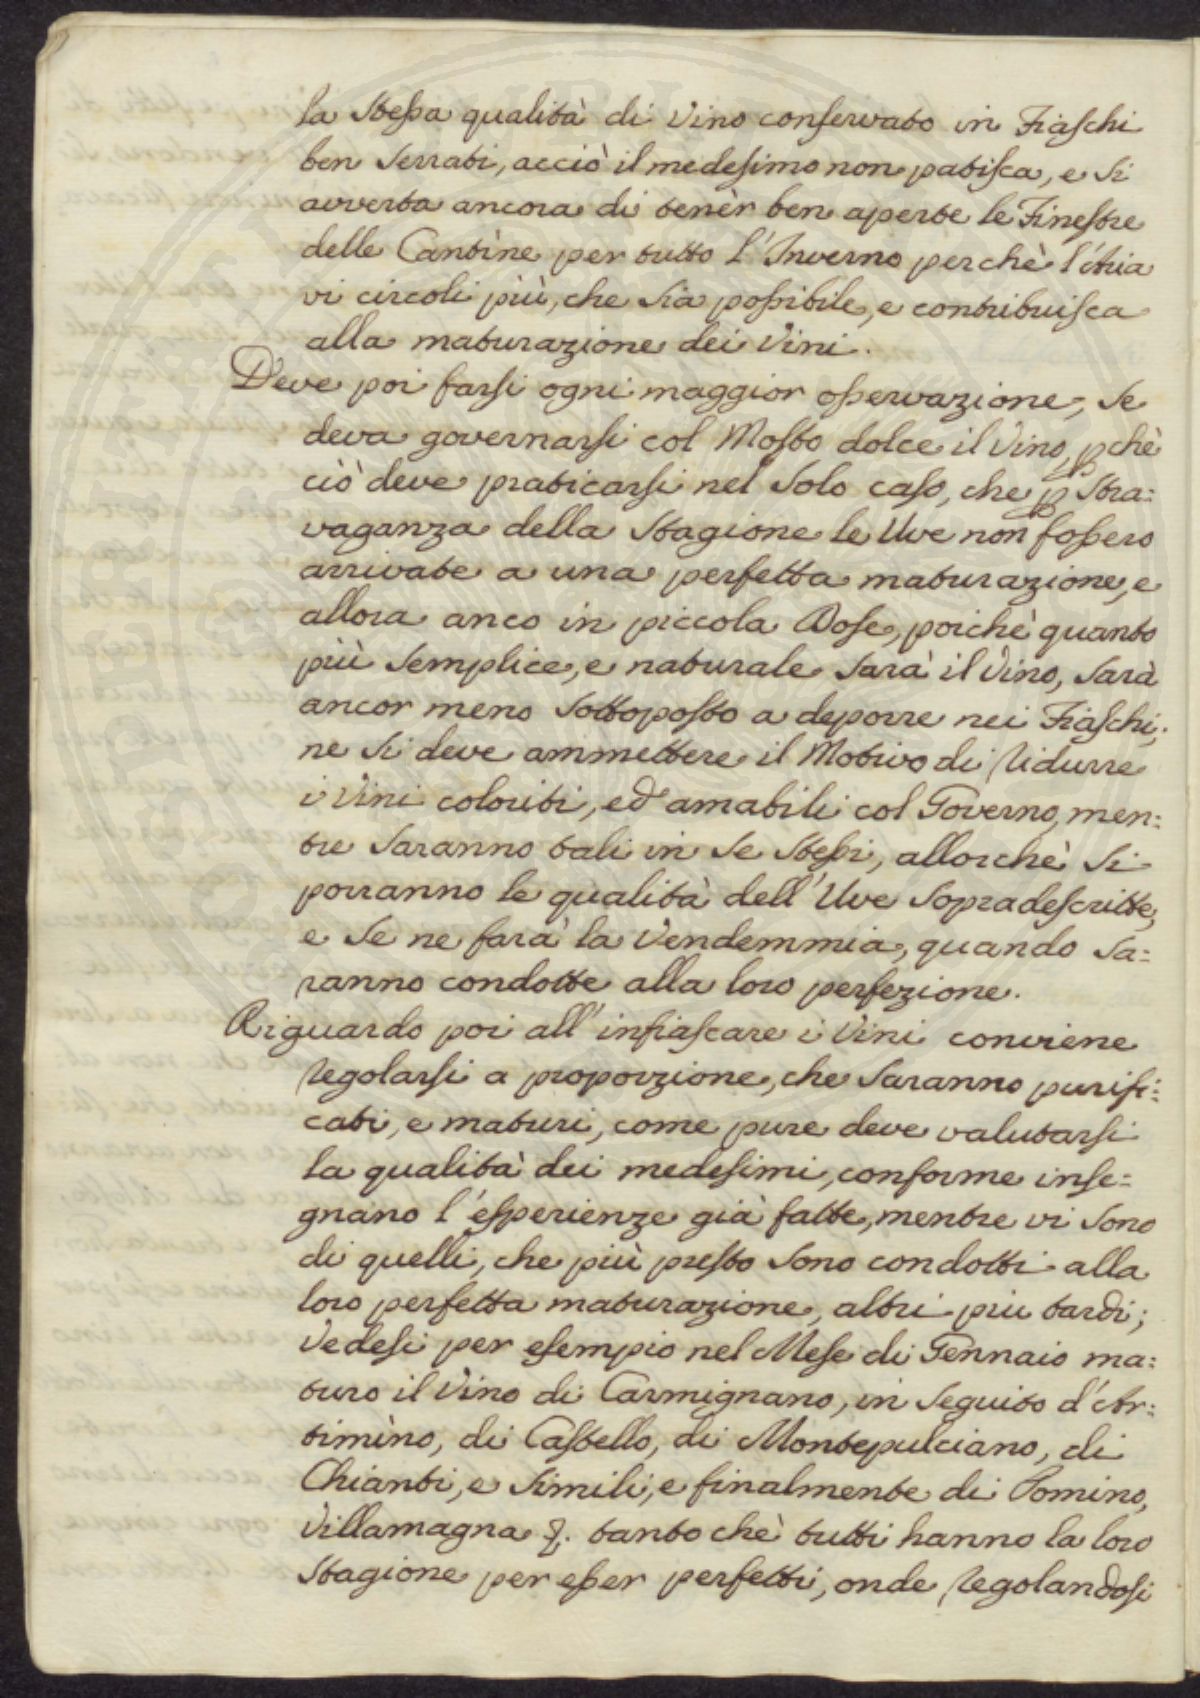 la stessa qualità di Vino conservato in Fiaschi
ben serrati, acciò il medesimo non patisca, e si
avverta ancora di tenèr ben aperte le Finestre
delle Cantine per tutto l'Inverno perchè l'Aria
vi circoli più, che sia possibile, e contribuisca
alla maturazione dei Vini.
Deve poi farsi ogni maggior osservazione, se
deva governarsi col Mosto dolce il Vino, pchè
ciò deve praticarsi nel solo caso, che p stra:
vaganza della Stagione le Uve non fossero
arrivate a una perfetta maturazione, e
allora anco in piccola Dose, poichè quanto
più semplice, e naturale sarà il Vino, sarà
ancor meno sottoposto a deporre nei Fiaschi;
ne si deve ammettere il Motivo di ridurre
i Vini coloriti, ed amabili col Governo, men:
tre saranno tali in se stessi, allorchè si
porranno le qualità dell'Uve sopradescritte,
e se ne farà la Vendemmia, quando sa:
ranno condotte alla loro perfezione.
Riguardo poi all'infiascare i Vini conviene
regolarsi a proporzione, che saranno purifi:
cati, e maturi, come pure deve valutarsi
la qualità dei medesimi, conforme inse:
gnano l'esperienze già fatte, mentre vi sono
di quelli, che più presto sono condotti alla
loro perfetta maturazione, altri più tardi;
Vedesi per esempio nel Mese di Gennaio ma:
turo il Vino di Carmignano, in seguito d'Ar:
timino, di Castello, di Montepulciano, di
Chianti, e simili, e finalmente di Pomino,
Villamagna &. tanto chè tutti hanno la loro
Stagione per esser perfetti, onde regolandosi